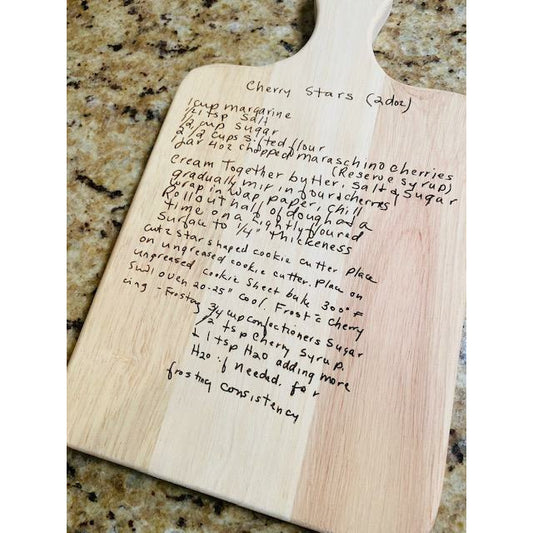 Cherry Stars (2doz)
1 cup margarine
1/2 tsp salt
1/2 cup sugar
2 1/2 cups sifted flour
Jar 4oz chopped maraschino cherries
(Reserve syrup)
Cream Together butter, salt & Sugar
gradually mix in flour & cherries
wrap in wap paper, chill
Roll out half of dough at a
time on a lightly floured
Surfau to 1/4" thickeness
Cut z Star shaped cookie cutter Place
on ungreased cookie cutter. Place on
ungreased cookie Sheet bake 300° F
oven 20-25" Cool, Frost c Cherry
cing - Frosting 3/4 cup confectioners Sugar
1/2 tsp Cherry Syrup.
1 tsp H2O adding more
H2O if needed, for
frosting consistency